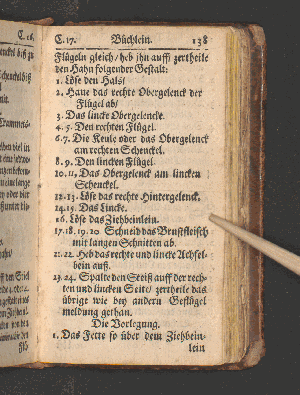 C. 17. Büchlein. 138
Flügeln gleich / heb ihn auff / zertheile
den Hahn folgender Gestalt:
1. Löse den Hals /
2. Haue das rechte Obergelenck der
Flügel ab /
3. Das lincke Obergelencke.
4. 5. Den rechten Flügel.
6. 7. Die Keule oder das Obergelenck
am rechten Schenckel.
8. 9. Den lincken Flügel.
10. 11. Das Obergelenck am lincken
Schenckel.
12. 13. Löse das rechte Hintergelenck.
14. 15. Das Lincke.
16. Löse das Ziehbeinlein.
17. 18. 19. 20. Schneid das Brustfleisch
mit langen Schnitten ab.
21. 22. Heb das rechte und lincke Achsel-
bein auß.
23. 24. Spalte den Steiß auff der rech-
ten und lincken Seite / zertheile das
übrige wie bey andern Geflügel
meldung gethan.
Die Vorlegung.
1. Das Fette so über dem Ziehbein-
lein